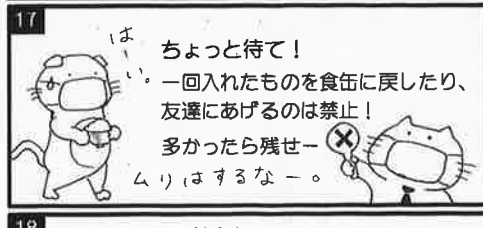 17
はーい。
ちょっと待て！
一回入れたものを食缶に戻したり、
友達にあげるのは禁止！
多かったら残せー
ムリはするなー。
18